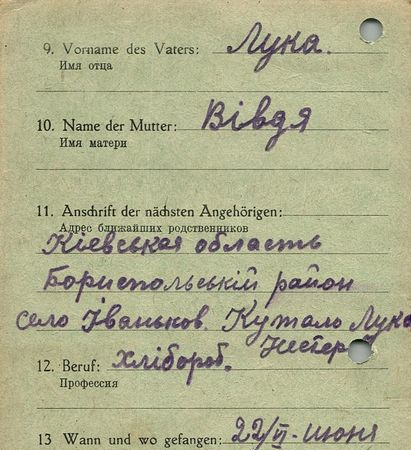 9. Vorname des Vaters: Лука.
Имя отца
10. Name der Mutter: Вівдя
Имя матери
11. Anschrift der nächsten Angehörigen:
Адрес ближайших родственников
Кіевская область
Бориспольській район
село Іваньков. Кутало Лука
Нестер
12. Beruf: Хлібороб.
Профессия
13 Wann und wo gefangen: 22/VI-июня